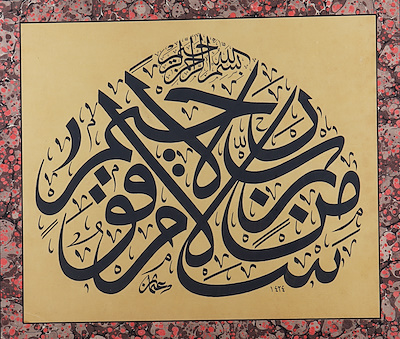 بسم الله الرحمن الرحيم
سلام قولا من رب رحيم
١٤٢٤